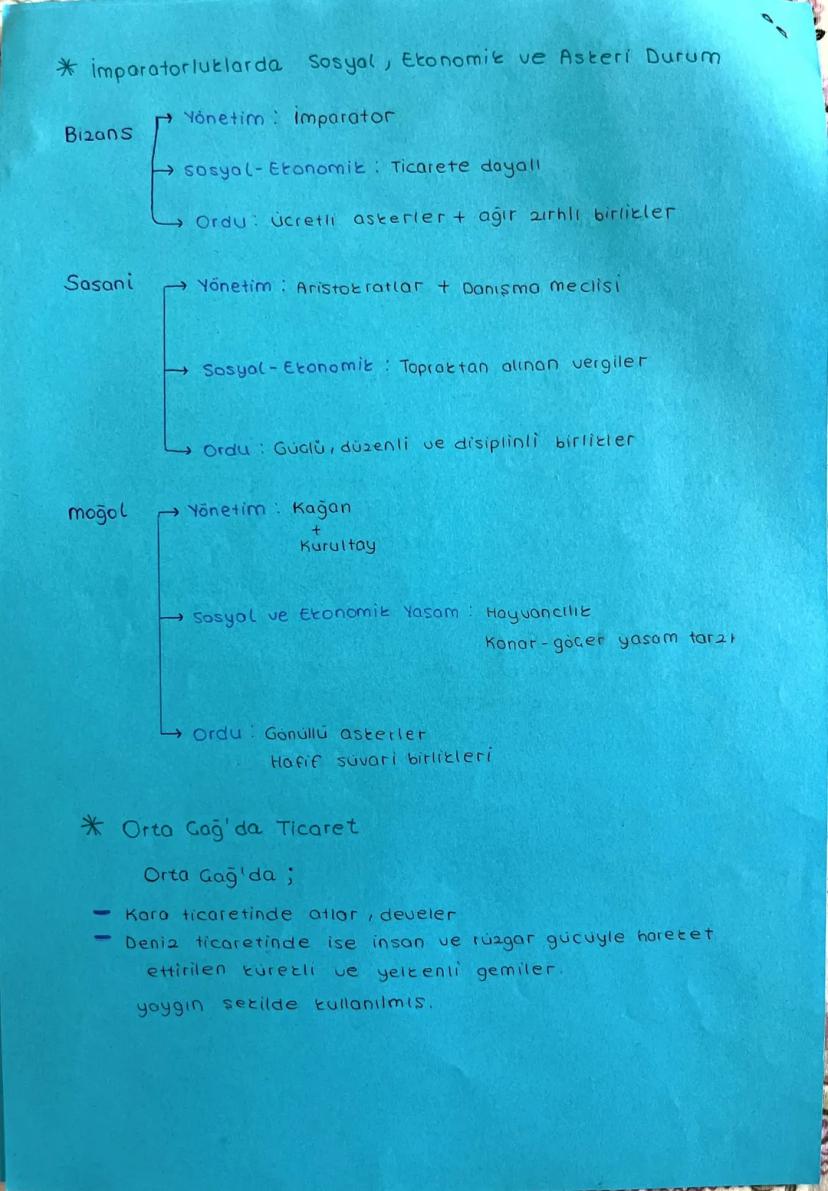 * İmparatorluklarda Sosyal, Ekonomik ve Askeri Durum
Bizans → Yönetim : İmparator
→ Sosyal-Ekonomik : Ticarete dayalı
→ Ordu : Ücretli askerler + ağır zırhlı birlikler
Sasani → Yönetim : Aristokratlar + Danışma meclisi
→ Sosyal-Ekonomik : Topraktan alınan vergiler
→ Ordu : Güçlü, düzenli ve disiplinli birlikler
moğol → Yönetim : Kağan
+
Kurultay
→ Sosyal ve Ekonomik Yaşam : Hayvancılık
Konar-göçer yaşam tarzı
→ Ordu : Gönüllü askerler
Hafif süvari birlikleri
* Orta Çağ'da Ticaret
Orta Çağ'da ;
- Kara ticaretinde atlar, develer
- Deniz ticaretinde ise insan ve rüzgar gücüyle hareket
ettirilen kürekli ve yelkenli gemiler.
yaygın şekilde kullanılmış.